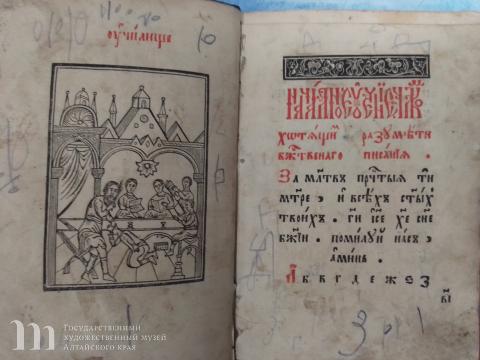 ѹчилище
хотѧщимъ разумѣти
бжтвенаго писанїѧ .
За млтвъ прчтыѧ ти
мтре , и всѣхъ стых
твоихъ . ги ісе хе сне
бжїи . помилуй насъ .
аминь .
А б в г д е ж ѕ з
Государственный
художественный музей
Алтайского края